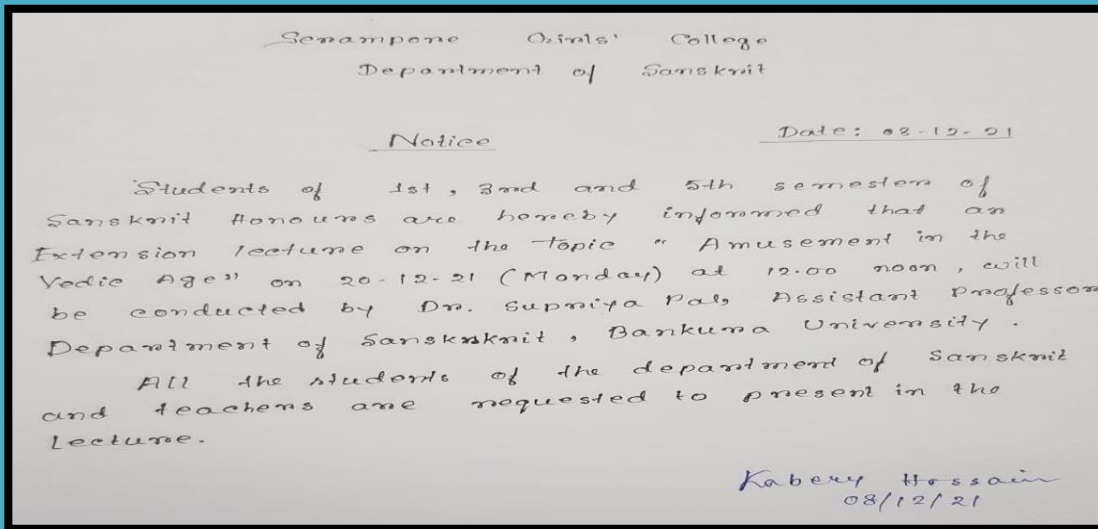 Serampore Girls' College
Department of Sanskrit
Notice
Date: 08-12-21
Students of 1st, 3rd and 5th semester of
Sanskrit Honours are hereby informed that an
Extension lecture on the Topic " Amusement in the
Vedic Age" on 20-12-21 (Monday) at 12.00 noon, will
be conducted by Dr. Supriya Pal, Assistant Professor
Department of Sanskrit, Bankura University.
All the students of the department of Sanskrit
and teachers are requested to present in the
Lecture.
Kabery Hossain
08/12/21